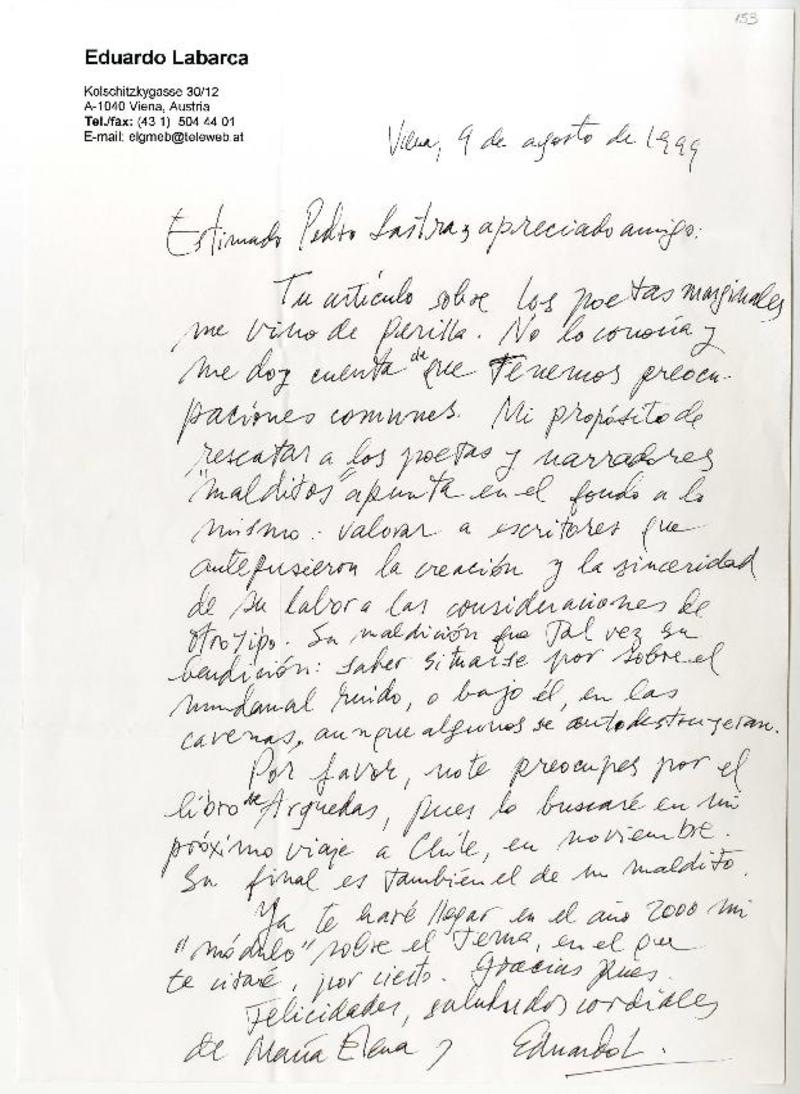 153
Eduardo Labarca
Kolschitzkygasse 30/12
A-1040 Viena, Austria
Tel./fax: (43 1) 504 44 01
E-mail: elgmeb@teleweb.at
Viena, 9 de agosto de 1999
Estimado Pedro Lastra y apreciado amigo:
Tu artículo sobre los poetas marginales
me vino de perilla. No lo conocía y
me doy cuenta de que tenemos preocu-
paciones comunes. Mi propósito de
rescatar a los poetas y narradores
"malditos" apunta en el fondo a lo
mismo: valorar a escritores que
antepusieron la creación y la sinceridad
de su labor a las consideraciones de
otro tipo. Su maldición fue tal vez su
bendición: saber situarse por sobre el
mundanal ruido, o bajo él, en las
cavernas, aunque algunos se autodestruyeran.
Por favor, no te preocupes por el
libro de Arguedas, pues lo buscaré en mi
próximo viaje a Chile, en noviembre.
Su final es también el de un maldito.
Ya te haré llegar en el año 2000 mi
"módulo" sobre el tema, en el que
te citaré, por cierto. Gracias pues.
Felicidades, saludos cordiales
de María Elena y Eduardo L.